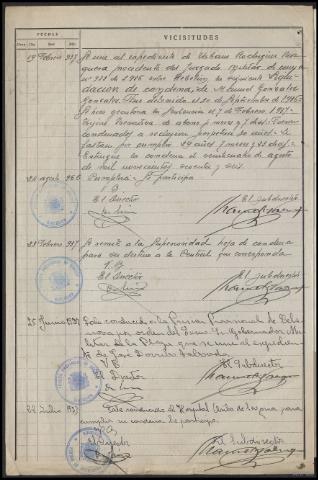 FECHAS
VICISITUDES
19 Febrero 937 Se une al expediente de Urbano Rodriguez
procedente del Juzgado Militar de
nº 938 de 1936 sobre Rebelion, la siguiente Liqui-
dacion de condena, de Manuel Gonzalez
Gonzalez. Fue detenido el 20 de Septiembre de 1936.
Se hizo ejecutoria la sentencia el 7 de Febrero 1937.
Prision Preventiva de abono 4 meses y 7 dias. Tiene
condenado a reclusion perpetua 30 años. Le
faltan por cumplir 29 años 7 meses y 23 dias.
Extingue la condena el veintinueve de agosto
de mil novecientos sesenta y seis.
29 agosto 966 Cumplirá. Se participa
V. B.
El Director
El Subdirector
23 Febrero 937 Se remite a la Superioridad hoja de condena
para su destino a la Central que corresponda
V. B.
El Director
El Subdirector
25 Junio 1937 Sale conducido a la Prision Provincial de
por orden del Excmo Sr. Gobernador Mili-
tar de la Plaza que se une al expedien-
te de José
V. B.
El Director
El Subdirector
22 Julio 937 Sale conducido al Hospital Asilo de para
cumplir su condena
V. B.
El Director
El Subdirector